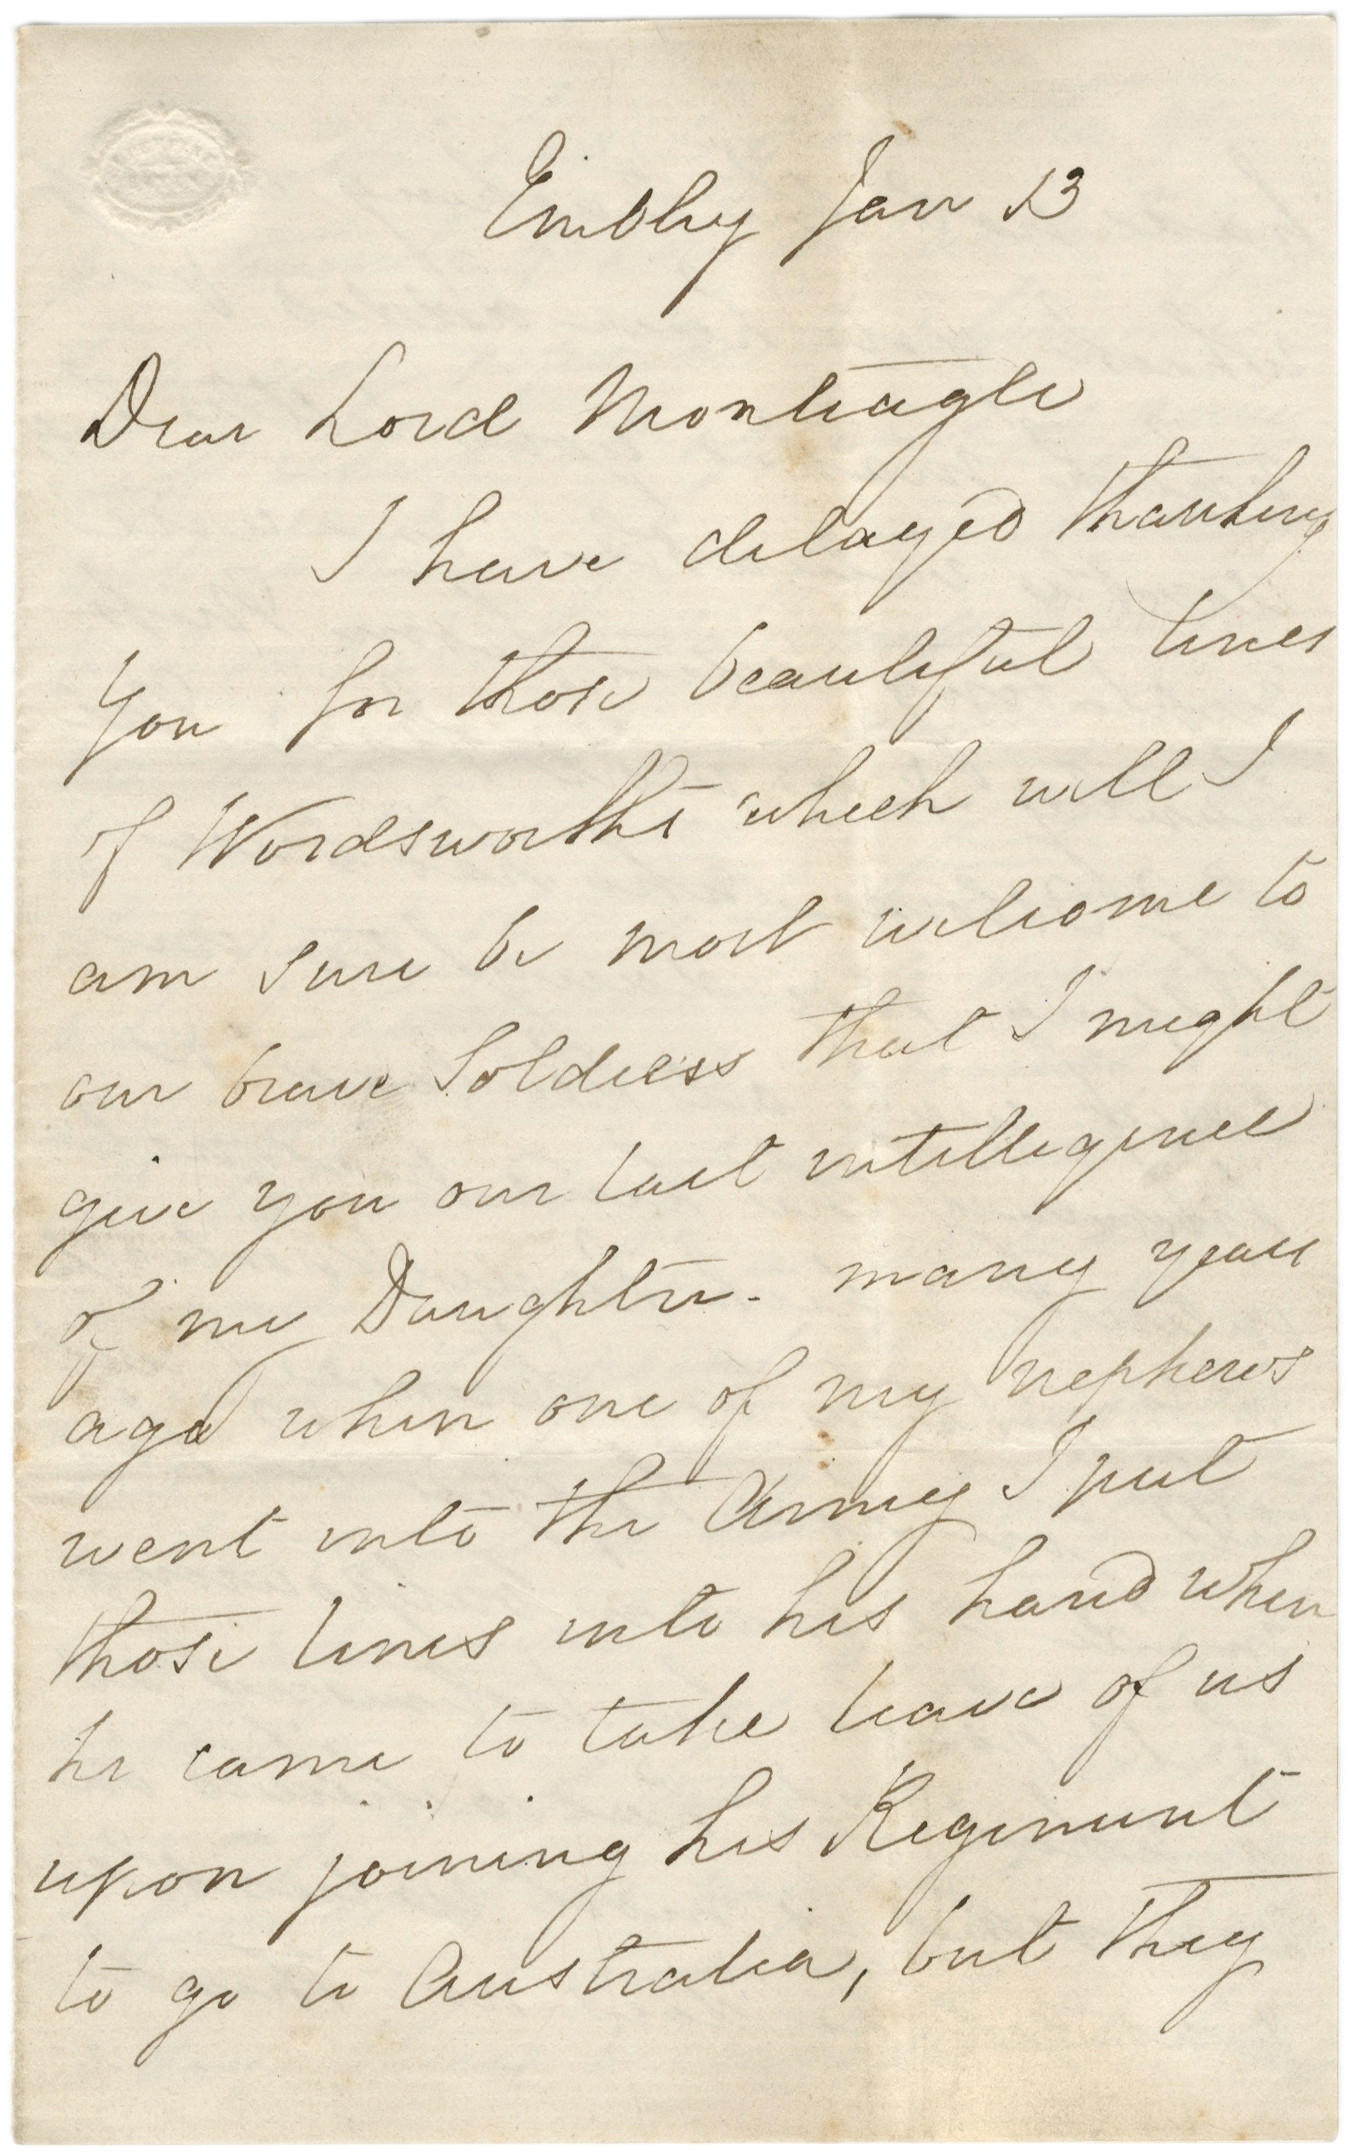 Embley Jan 13
Dear Lord Monteagle
I have delayed thanking
you for those beautiful lines
of Wordsworth's which will I
am sure be most welcome to
our brave Soldiers that I might
give you our last intelligence
of my Daughter. many years
ago when one of my nephews
went into the Army I put
those lines into his hand when
he came to take leave of us
upon joining his Regiment
to go to Australia, but they